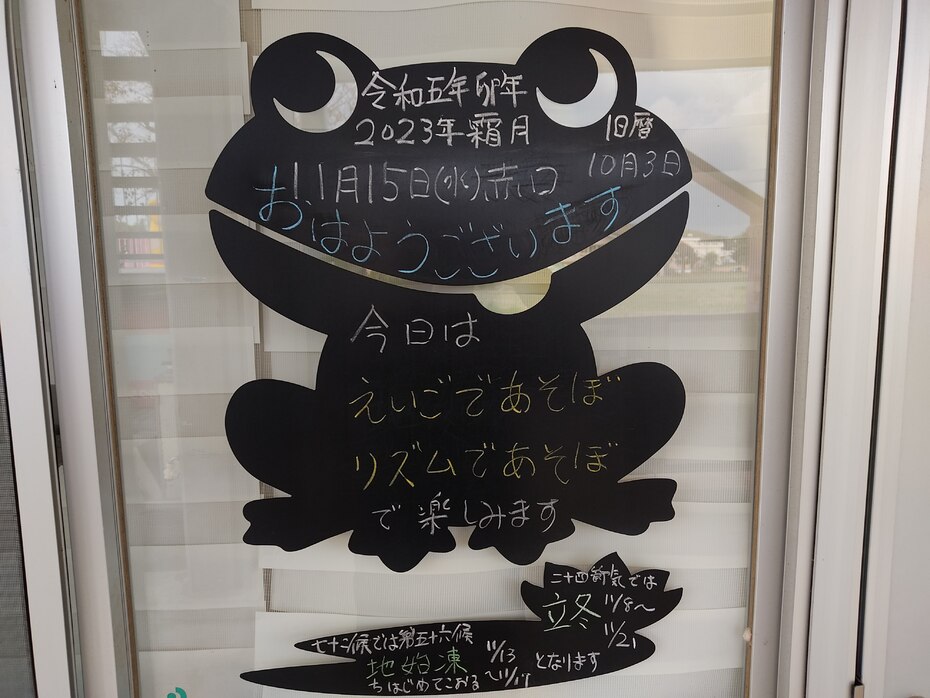 令和五年卯年
2023年霜月
旧暦
10月3日
11月15日(水)赤口
おはようございます
今日は
えいごであそぼ
リズムであそぼ
で楽しみます
二十四節気では
立冬 11/8〜
11/21
七十二候では第五十六候
地始凍 11/13
ちはじめてこおる 〜11/17
となります